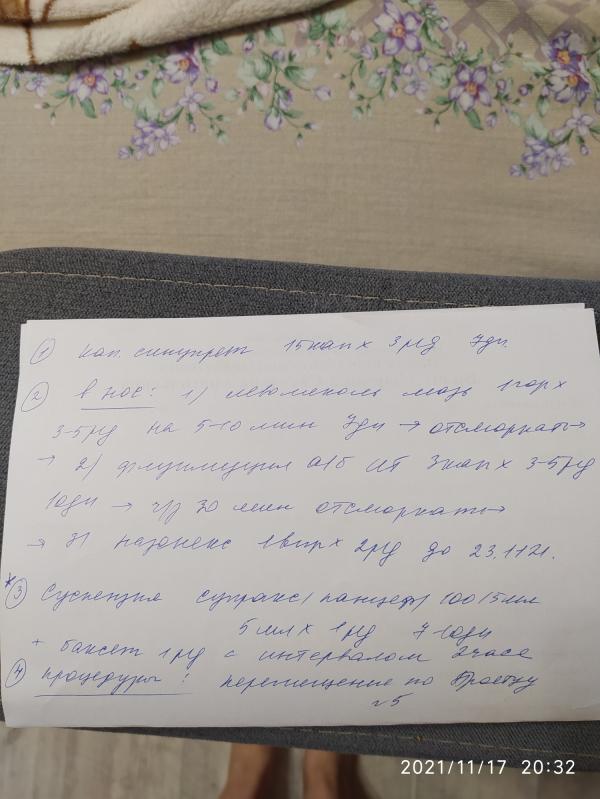 ① кап. синупрет 15 кап х 3 р/д 7 дн.
② в нос: 1) левомеколь мазь 1 гор х
3-5 р/д на 5-10 мин 7 дн → отсморкать →
→ 2) флуимуцил а/б ИТ 3 кап х 3-5 р/д
10 дн → ч/з 30 мин отсморкать →
→ 3) назонекс 1 впр х 2 р/д до 23.11 21.
* ③ Суспензия супракс / панцеф / 100/5 мл
5 мл х 1 р/д 7-10 дн
+ баксет 1 р/д с интервалом 2 часа
④ процедуры: перемещение по Проетцу
№5
2021/11/17 20:32